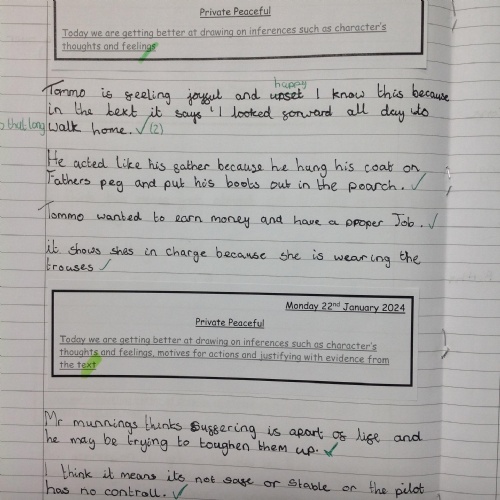 Private Peaceful
Today we are getting better at drawing on inferences such as character's
thoughts and feelings
happy
Tommo is feeling joyful and upset I know this because
in the text it says 'I looked forward all day to
that long
walk home. ✓(2)
He acted like his father because he hung his coat on
Fathers peg and put his boots out in the poarch. ✓
Tommo wanted to earn money and have a proper Job. ✓
it shows shes in charge because she is wearing the
trouses ✓
Monday 22nd January 2024
Private Peaceful
Today we are getting better at drawing on inferences such as character's
thoughts and feelings, motives for actions and justifying with evidence from
the text
Mr munnings thinks suffering is apart of life and
he may be trying to toughen them up. ✓
I think it means its not safe or stable or the pilot
has no controll. ✓